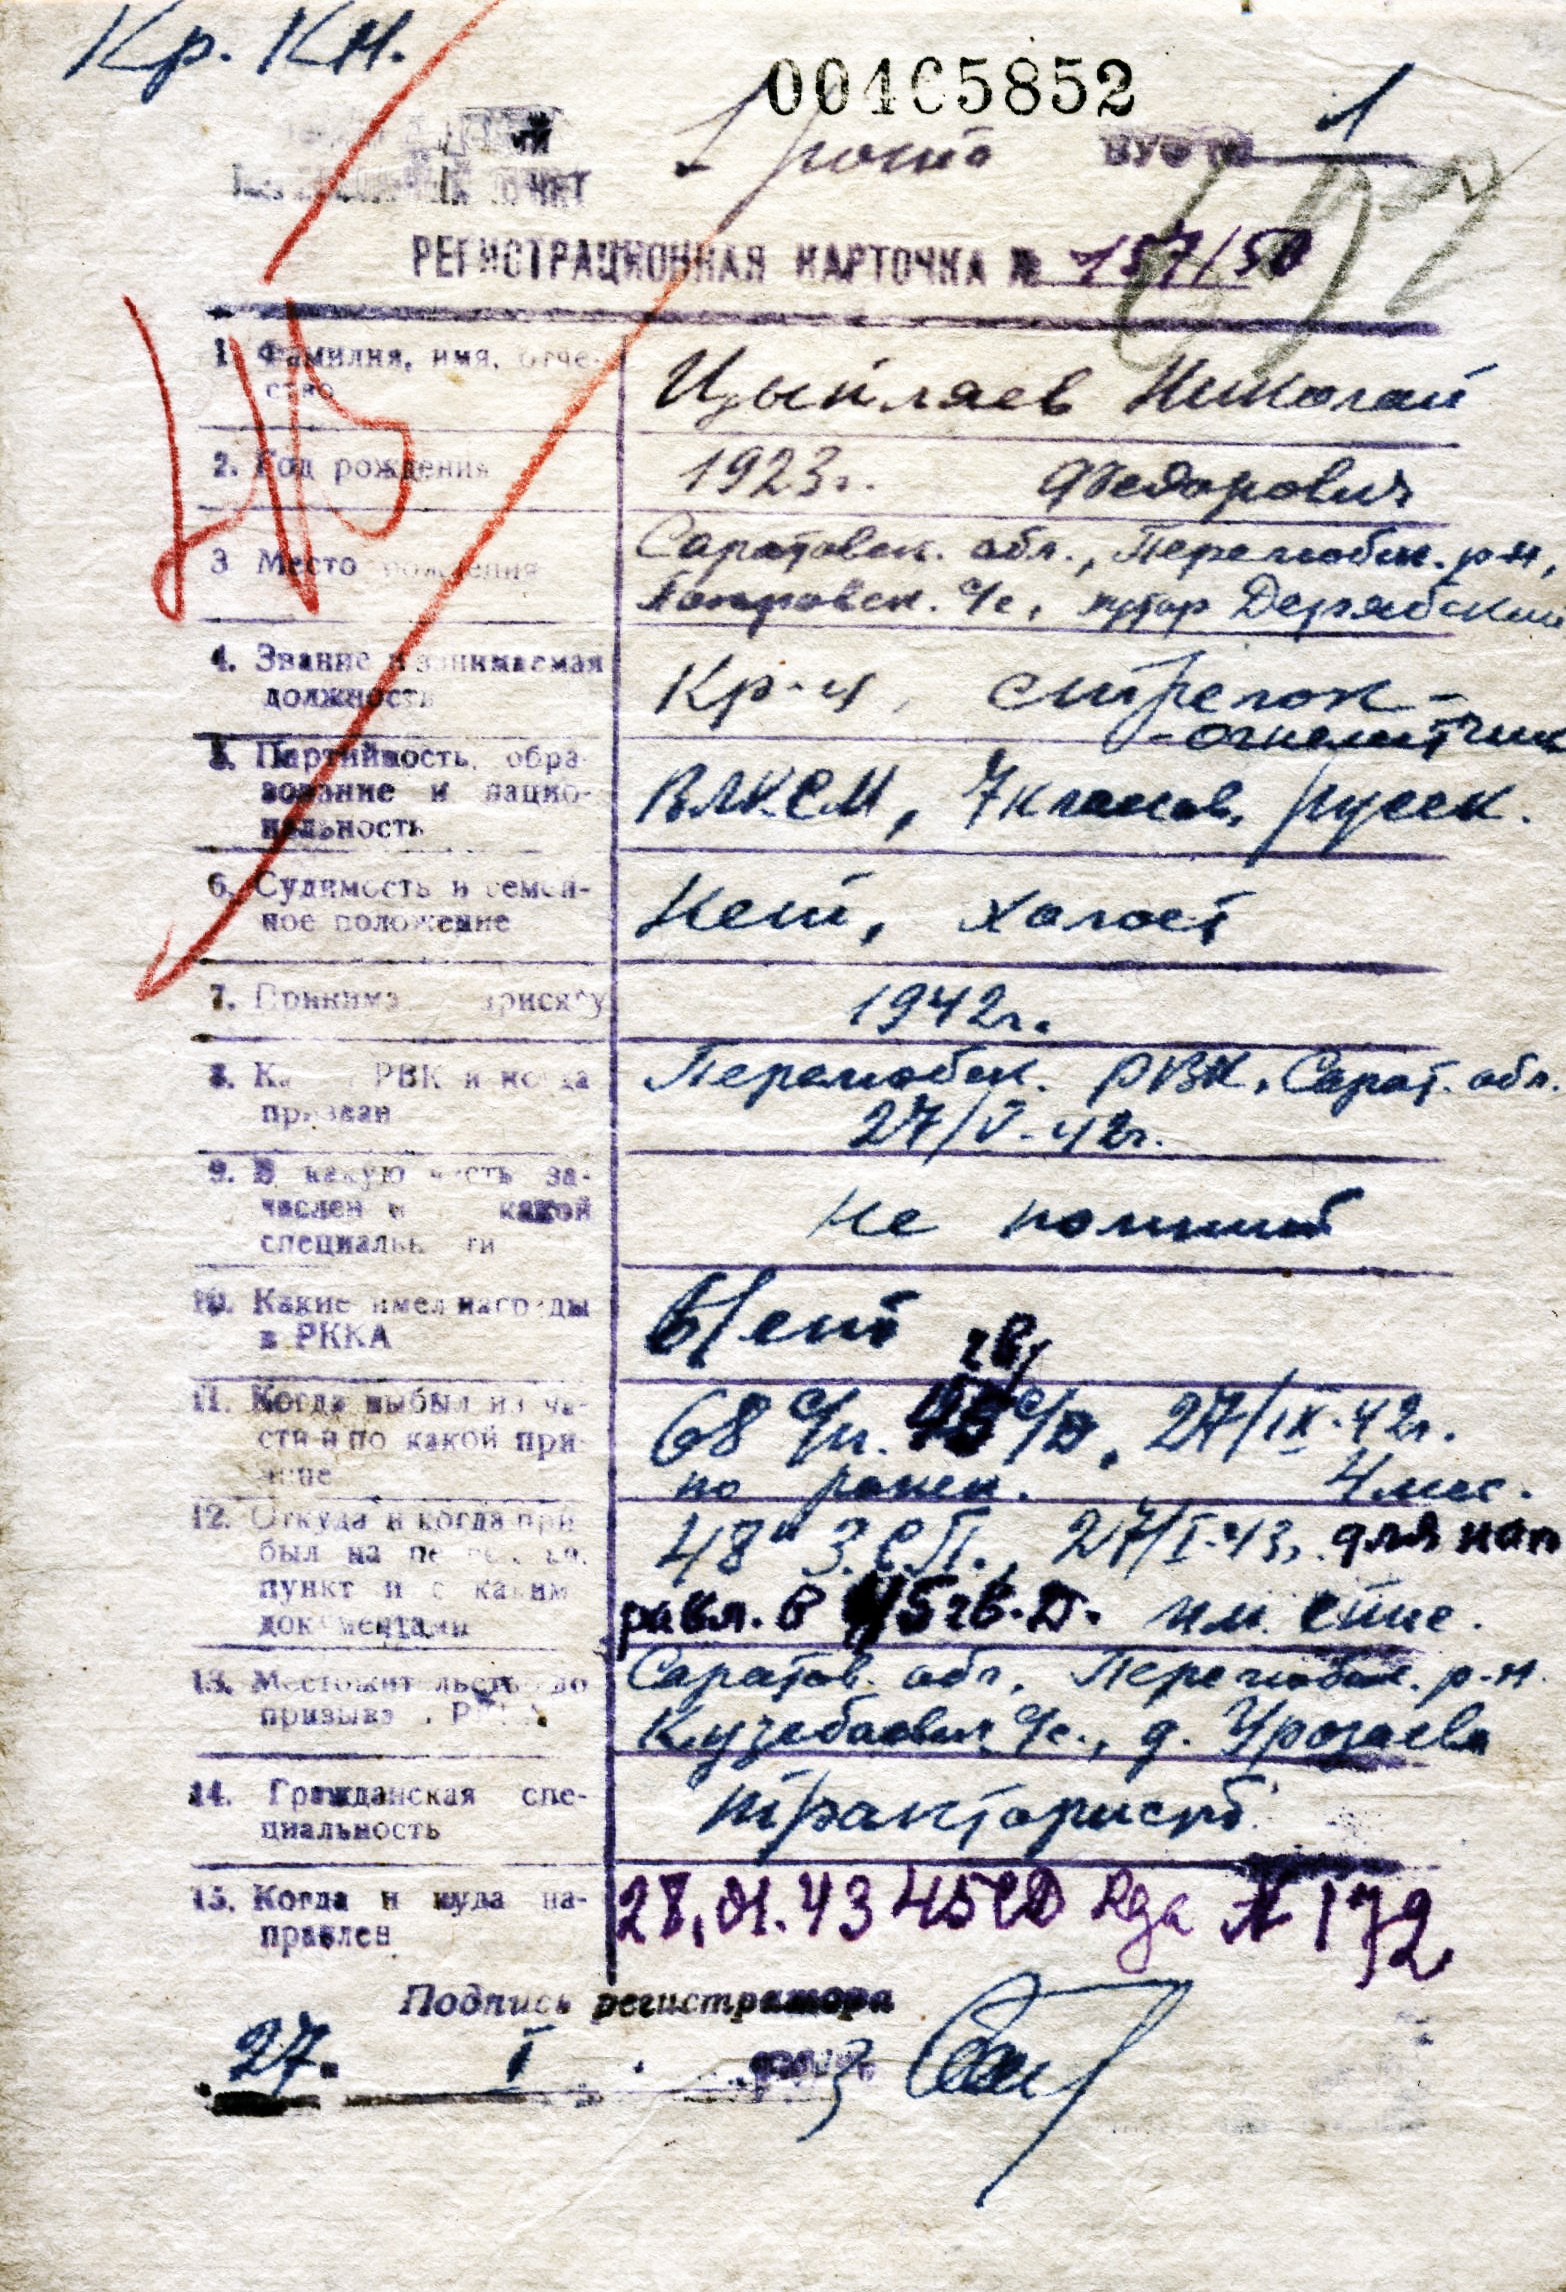 Кр. Кн.
00405852
1 рота ВУС № 1
ПЕРЕСЫЛЬНЫЙ ПУНКТ
РЕГИСТРАЦИОННАЯ КАРТОЧКА № 157/50
1. Фамилия, имя, отчество Цыпляев Николай
2. Год рождения 1923г. Федорович
3 Место рождения Саратовск. обл., Перелюбск. р-н,
с/с, хутор Дерябский
4. Звание и занимаемая должность Кр-ц, стрелок-
-огнеметчик
5. Партийность, образование и национальность ВЛКСМ, 7 классов, русск.
6. Судимость и семейное положение Нет, холост
7. Принимал присягу 1942г.
8. Каким РВК и когда призван Перелюбск. РВК, Сарат. обл.
27/V-42г.
9. В какую часть зачислен и по какой специальности Не помнит
10. Какие имел награды в РККА Нет
11. Когда выбыл из части и по какой причине 68 с/п. 45 гв/ с/д, 27/IX-42г.
по ранен. 4 мес.
12. Откуда и когда прибыл на пересыльн. пункт и с каким документами 48й З.С.П., 27/I-43, для нап
равл. в 45 гв. Д.
13. Местожительство до призыва в РККА Саратов. обл. Перелюбск. р-н.
с/с., д.
14. Гражданская специальность тракторист
15. Когда и куда направлен 28.01.43 45 СД № 172
Подпись регистратора
27. I 3